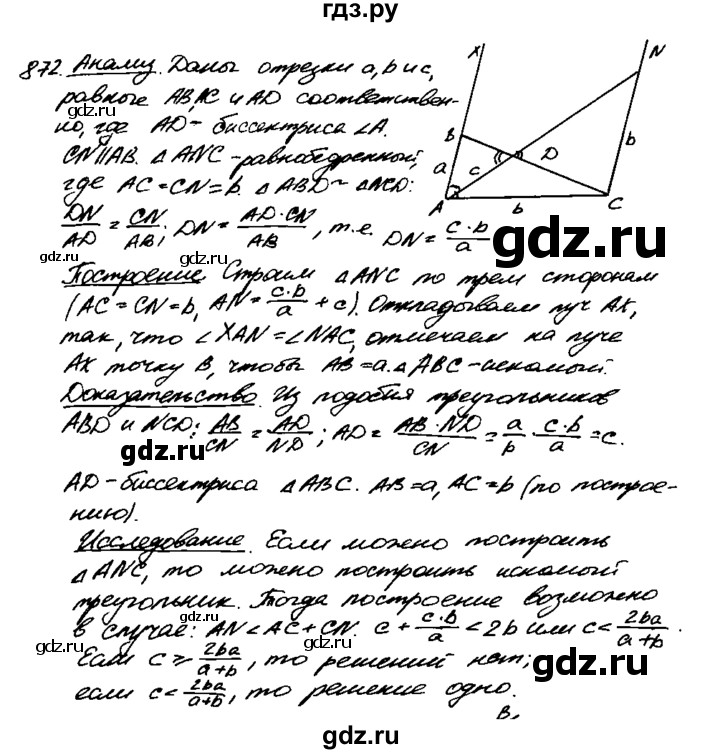 гдз.ру
872. Анализ. Даны отрезки a, b и c,
равные AB, AC и AD соответствен-
но, где AD - биссектриса ∠A.
CN∥AB. △ANC - равнобедренный,
где AC = CN = b. △ABD ~ △NCD:
DN/AD = CN/AB; DN = AD·CN/AB, т.е. DN = c·b/a
X
N
B
a
c
D
b
A
b
C
gdz.ru
gdz.ru
Построение. Строим △ANC по трем сторонам
(AC = CN = b, AN = c·b/a + c). Откладываем луч AX,
так, что ∠XAN = ∠NAC, отмечаем на луче
AX точку B, чтобы AB = a. △ABC - искомый.
Доказательство. Из подобия треугольников
ABD и NCD: AB/CN = AD/ND; AD = AB·ND/CN = a/b · c·b/a = c.
gdz.ru
gdz.ru
AD - биссектриса △ABC. AB = a, AC = b (по построе-
нию).
Исследование. Если можно построить
△ANC, то можно построить искомый
треугольник. Тогда построение возможно
в случае: AN < AC + CN. c + c·b/a < 2b или c < 2ba/a+b.
Если c ≥ 2ba/a+b, то решений нет;
если c < 2ba/a+b, то решение одно.
gdz.ru
gdz.ru
gdz.ru